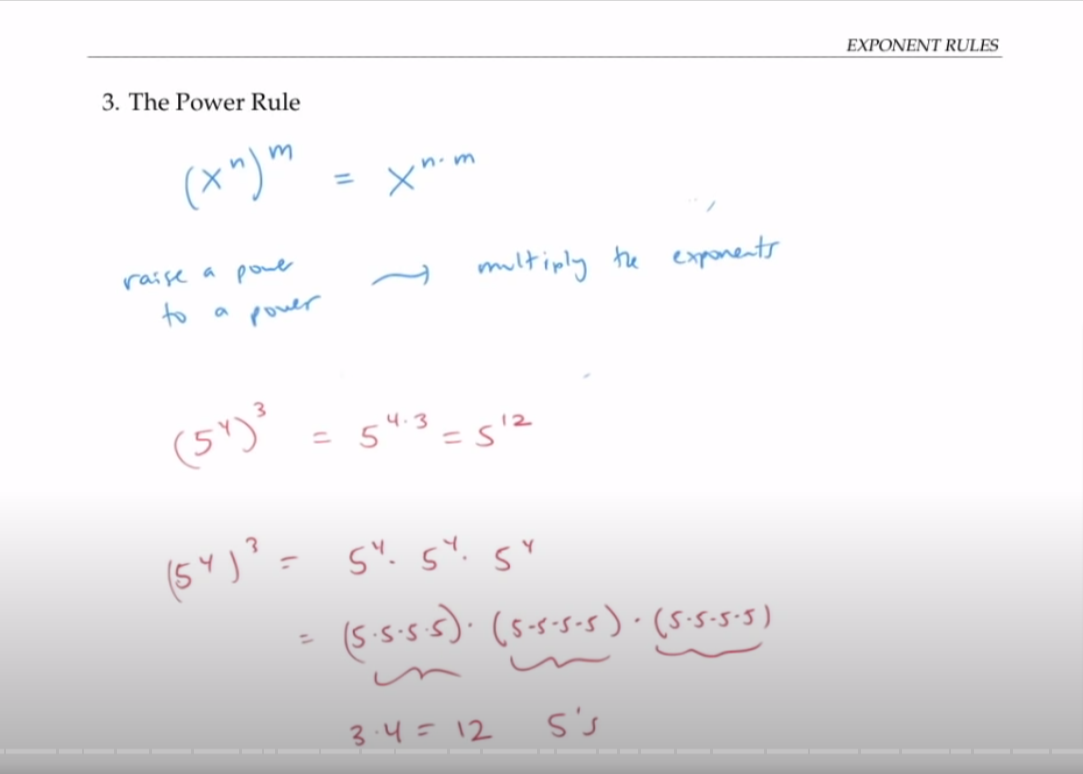 EXPONENT RULES
3. The Power Rule
(xⁿ)ᵐ = xⁿ·ᵐ
raise a power ⟶ multiply the exponents
to a power
(5⁴)³ = 5⁴·³ = 5¹²
(5⁴)³ = 5⁴· 5⁴· 5⁴
= (5·5·5·5)· (5·5·5·5) · (5·5·5·5)
3·4 = 12 5's